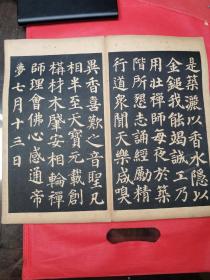 是築灑以香水隱以
金鎚我能竭誠工乃
用壯禪師每夜於築
階所懇志誦經勵精
行道衆聞天樂咸嗅
異香喜歎之音聖凡
相半至天寶元載創
構材木肇安相輪禪
師理會佛心感通帝
夢七月十三日